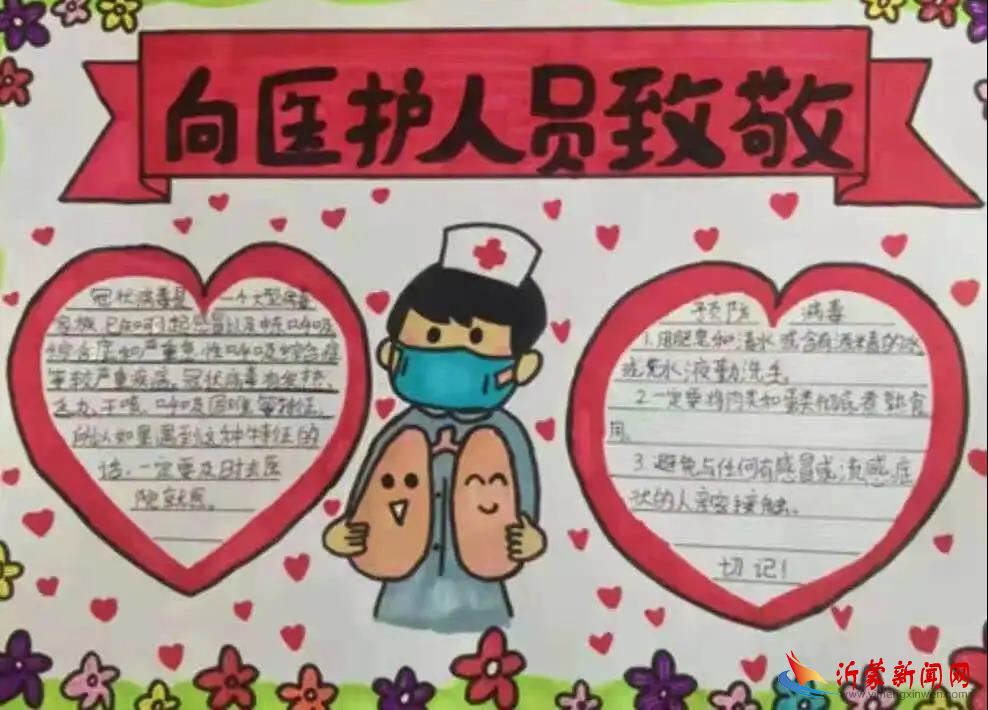 向医护人员致敬
冠状病毒是一个大型病毒
家族,已知可引起感冒以及中东呼吸
综合征和严重急性呼吸综合征
等较严重疾病。冠状病毒有发热、
乏力、干咳、呼吸困难等特征。
所以如果遇到这种特征的
话,一定要及时去医
院就医。
预防 病毒
1.用肥皂和清水或含有酒精的
洗手液勤洗手。
2.一定要将肉类和蛋类彻底煮熟食
用。
3.避免与任何有感冒或流感症
状的人亲密接触。
切记!
沂蒙新闻网
www.yimengxinwen.com